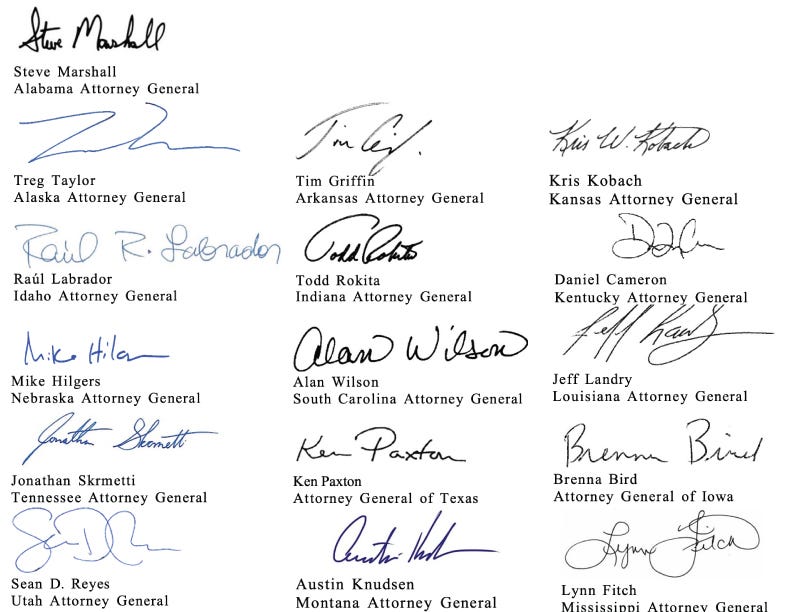 Steve Marshall
Steve Marshall
Alabama Attorney General
Tim Griffin
Kris W. Kobach
Treg Taylor
Alaska Attorney General
Tim Griffin
Arkansas Attorney General
Kris Kobach
Kansas Attorney General
Raúl R. Labrador
Todd Rokita
Raúl Labrador
Idaho Attorney General
Todd Rokita
Indiana Attorney General
Daniel Cameron
Kentucky Attorney General
Mike Hilgers
Alan Wilson
Jeff Landry
Mike Hilgers
Nebraska Attorney General
Alan Wilson
South Carolina Attorney General
Jeff Landry
Louisiana Attorney General
Jonathan Skrmetti
Ken Paxton
Brenna Bird
Jonathan Skrmetti
Tennessee Attorney General
Ken Paxton
Attorney General of Texas
Brenna Bird
Attorney General of Iowa
Austin Knudsen
Lynn Fitch
Sean D. Reyes
Utah Attorney General
Austin Knudsen
Montana Attorney General
Lynn Fitch
Mississippi Attorney General